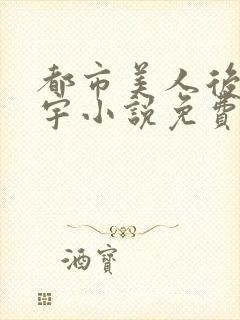 都市美人後
宇小說免費
酒寶